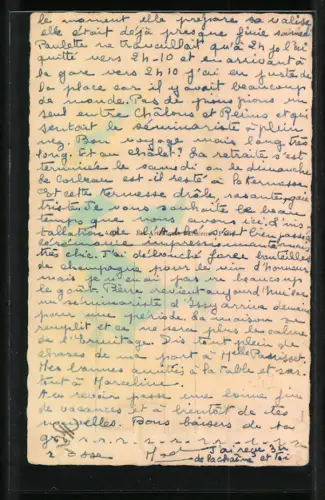 le moment elle prépare sa valise
elle était déjà presque finie samedi
Paulette ne travaillait qu'à 2h je l'ai
quitté vers 2h-10 et en arrivant à
la gare vers 2h10 j'ai eu juste de
la place car il y avait beaucoup
de monde. Pas de un
seul entre Châlons et Reims et qui
sentait le séminariste à plein
nez. Bon voyage mais long, très
long. Et au châlet? La retraite s'est
terminée le samedi on le dimanche
de est resté à la Kermesse.
cette Kermesse drôle,
triste. Je vous souhaite le beau
temps que nous avons ici. d'ins-
tallation de l'Abbé s'est bien passée
cérémonie impressionnante mais
très chic. J'ai débouché force bouteilles
de champagne pour le vin d'honneur
mais je n'en ai pas eu beaucoup
le goût. Pierre revient aujourd'hui
un séminariste d'Issy arrive demain
pour une période. La maison se
remplit et ce ne sera plus le calme
de l'Ermitage. Dis tout plein de
choses de ma part à Melle
Mes bonnes amitiés à la table et sur-
tout à Marceline.
Au revoir passe une bonne fin
de vacances et à bientôt de tes
nouvelles. Bons baisers de ta
J'ai reçu
de la chaîne et toi